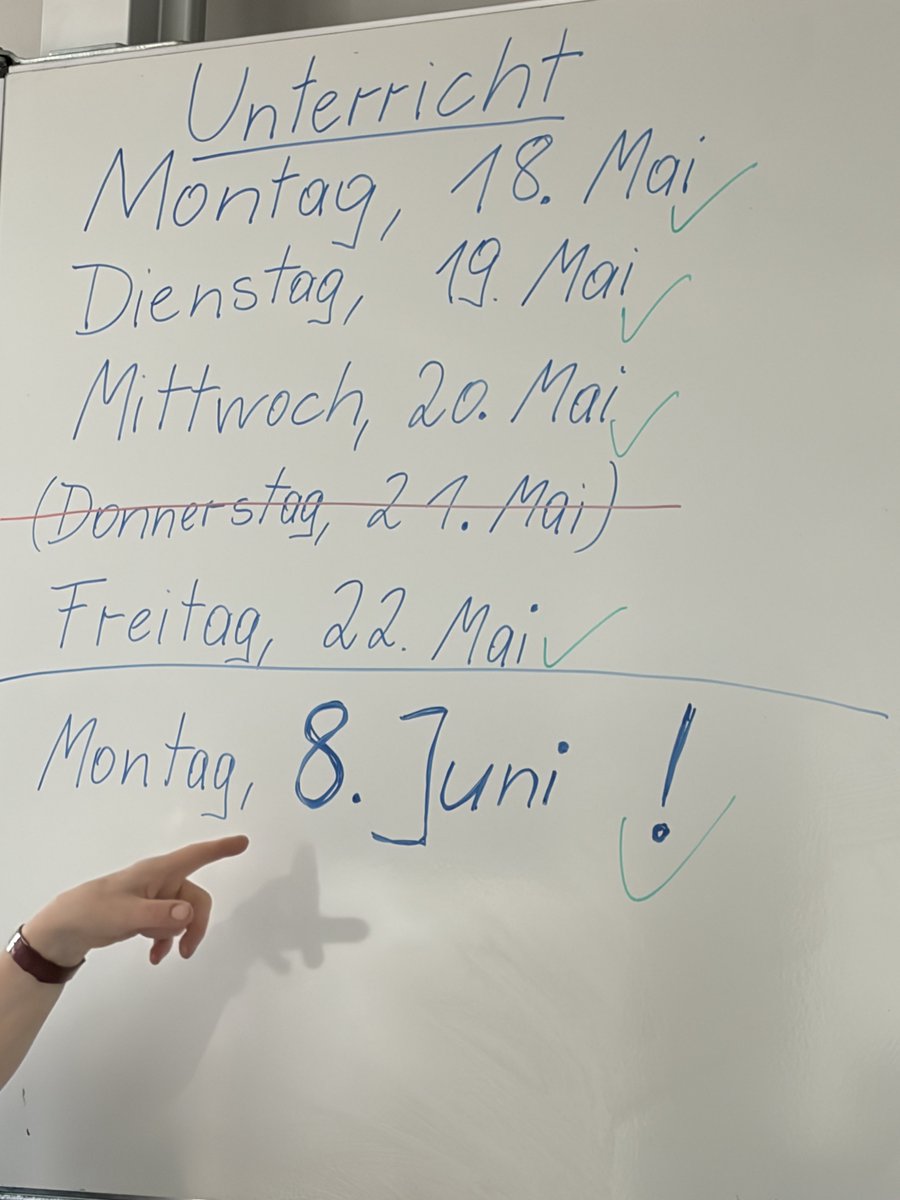 Unterricht
Montag, 18. Mai ✓
Dienstag, 19. Mai ✓
Mittwoch, 20. Mai ✓
(Donnerstag, 21. Mai)
Freitag, 22. Mai ✓
Montag, 8. Juni ! ✓